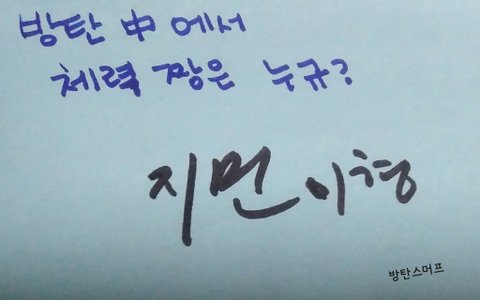 방탄 中 에서
체력 짱은 누규?
지민이형
방탄스머프